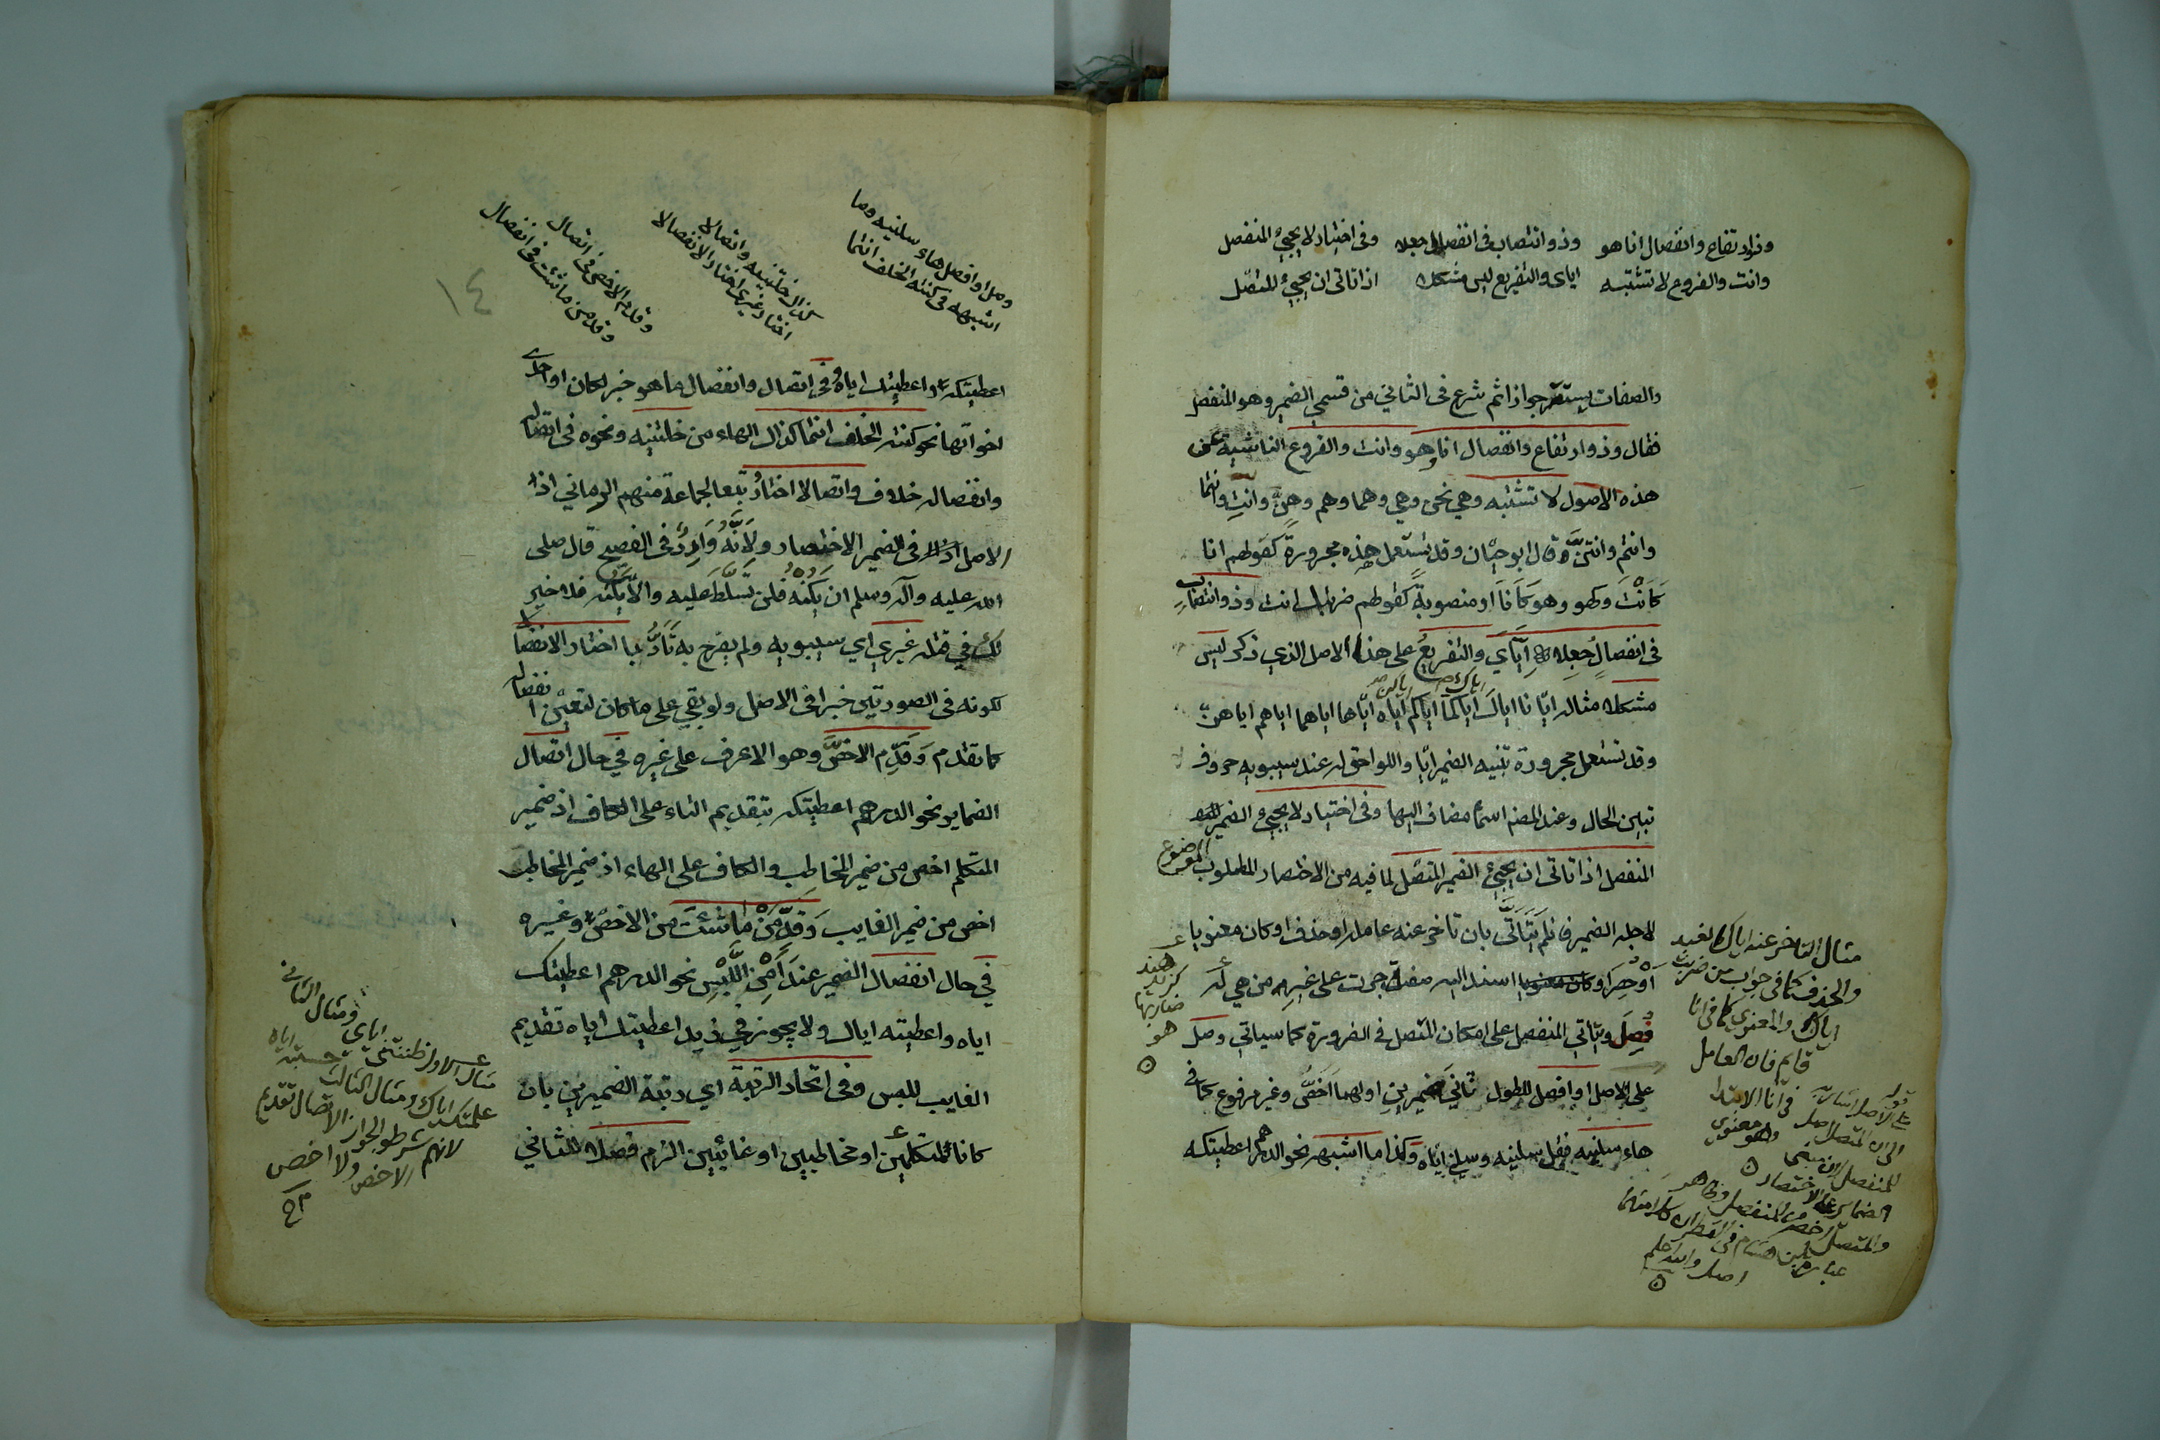 وذو ارتفاع وانفصال انا هو وذو انتصاب في انفصال جعلا وفي اختيار لا يجيئ المنفصل
وانت والفروع لا تشتبه اياى والتفريع ليس مشكلا اذا تاتى ان يجيئ المتصل
والصفات يستقر جوازا ثم شرع في الثاني من قسمي الضمير وهو المنفصل
فقال وذو ارتفاع وانفصال انا وهو وانت والفروع الناشية عن
هذه الاصول لا تشتبه وهي نحن وهي وهما وهم وهنّ وانتِ وانتما
وانتم وانتنّ قال ابو حيّان وقد تستعمل هذه مجرورة كقولهم انا
كَاَنْتَ وكهو وهو كَاَنَا او منصوبةً كقولهم ضربتك انت وذو انتصاب
في انفصالٍ جُعِلا اِيَّايَ والتفريعُ على هذا الاصل الذي ذكر ليس
مشكلا مثاله ايّانا اياكَ اياكما اياكم اياه اياها اياهما اياهم اياهنّ
اياكِ اياكن
وقد تستعمل مجرورة تنبيه الضمير ايا واللواحق له عند سيبويه حروف
تبين الحال وعند المصنف اسماً مضاف اليها وفي اختيار لا يجيئ الضمير
المنفصل اذا تاتى ان يجيئ الضمير المتصل لما فيه من الاختصار المطلوب الموضوع
لاجله الضمير فان لم يَتَاَتَّى بان تاخر عنه عامله او حذف او كان معنويا
اَوْ حُصِرَ او اسند اليه صفة جرت على غير من هي له
فُصِلَ ويتاتي المنفصل على امكان المتصل في الضرورة كما سياتي وصل
على الاصل او افصل للطول ثاني ضميرين اولهما اخصّ وغير مرفوع كما في
هاء سلنيه فقل سلنيه وسلني اياه وكذا ما اشبهه نحو الدرهم اعطيتكه
مثال التاخر عنه اياك نعبد
والحذف كما في جواب من ضربت
اياك والمعنوي كما في انا
قائم فان العامل
في انا الابتداء
وهو معنوي
هند
زيد
ضاربتها
هو
وصل او افصل هاء سلنيه وما
اشبهه في كنته الخلف انتما
كذاك خلتنيه واتصالا
اختار غيري اختار الانفصالا
وقدم الاخص في اتصال
وقدمن ما شئت في انفصال
١٤
اعطيتكه واعطيتك اياه وفي اتصال وانفصال ما هو خبر لكان او احدى
اخواتها نحو كنته الخلف انتما كذاك الهاء من خلتنيه ونحوه في اتصاله
وانفصاله خلاف واتصالا اختارُ تبعا لجماعة منهم الرماني اذ
الاصل في الضمير الاختصار ولانَّهُ وَارِدٌ في الفصيح قال صلى
الله عليه وآله وسلم ان يَكُنْهُ فلن تُسَلَّطَ عليه والّا يَكُنْه فلا خير
لك في قتله غيري اي سيبويه ولم يصرح به تأدُّبا اختار الانفصالا
لكونه في الصورتين خبرا في الاصل ولو بقي على ما كان لتعيّن انفصاله
كما تقدم وَقَدِّم الاخصَّ وهو الاعرف على غيره في حال اتصال
الضماير نحو الدرهم اعطيتكه بتقديم التاء على الكاف اذ ضمير
المتكلم اخص من ضمير المخاطب والكاف على الهاء اذ ضمير المخاطب
اخص من ضمير الغايب وَقَدِّمَنْ ما شئتَ من الاخص وغيره
في حال انفصال الضمير عند اَمْنِ اللَّبْسِ نحو الدرهم اعطيتك
اياه واعطيته اياك ولا يجوز في زيد اعطيتك اياه تقديم
الغايب للبس وفي اتحاد الرتبة اي رتبة الضميرين بان
كانا لمتكلمين او مخاطبين او غائبين الزم فصلا للثاني
ومثال الثاني
مثال الاول ظننتني اياي
علمتك اياك ومثال الثالث حسبته اياه
لانهم شرطوا لجواز الاتصال تقديم
الاخص ولا اخص